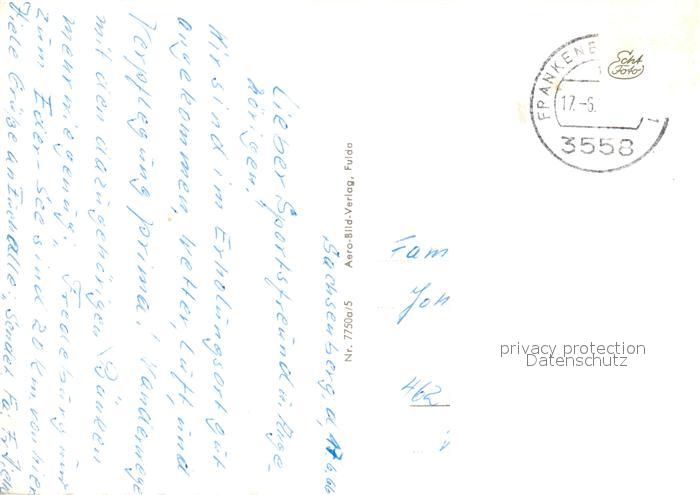 Sachsenberg, d. 17.6.66
Lieber Sportsfreund u. Ange-
hörigen,
Wir sind im Erholungsort gut
angekommen, Wetter, Luft, und
Verpflegung prima, Wanderwege
mit den dazugehörigen Bänken
mehr wie genung,
zum Eder-See sind 20 km von hier
Viele Grüße an Euch alle, sendet Fa.
Nr. 7750a/5 Aero-Bild-Verlag, Fulda
FRANKENE
17.-6.
3558
Echt
Foto
Fam
Joh
462
privacy protection
Datenschutz